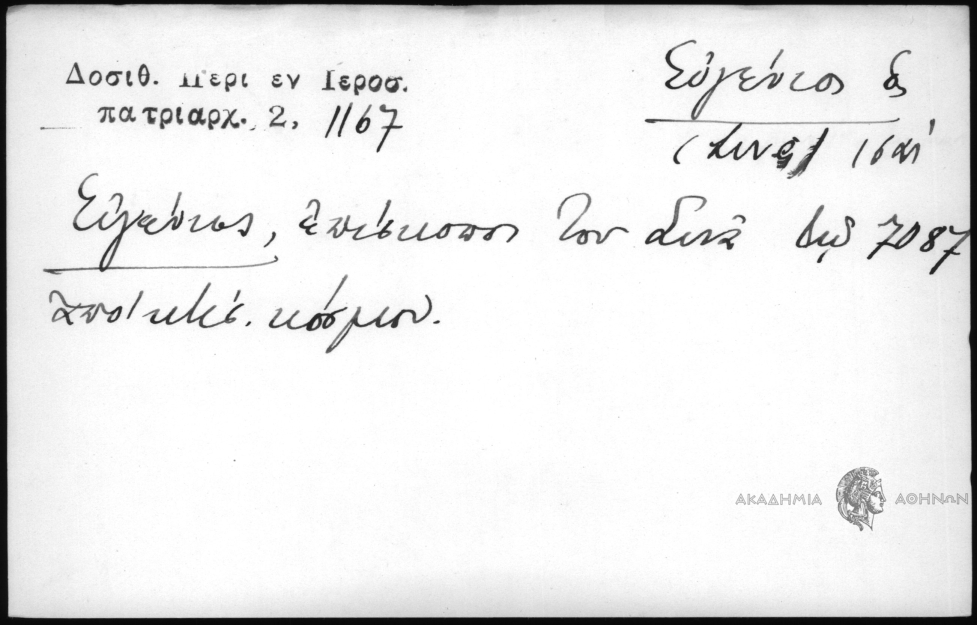 Δοσιθ. Περι εν Ιεροσ.
πατριαρχ. 2, 1167
Εὐγένιος
Εὐγένιος, ἐπίσκοπος τοῦ Σινᾶ 7087
ἀπὸ κτίσ. κόσμου.
ΑΚΑΔΗΜΙΑ ΑΘΗΝΩΝ